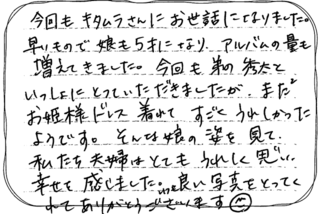 今回もキタムラさんにお世話になりました。
早いもので娘も5才になり、アルバムの量も
増えてきました。今回も弟の秀太と
いっしょにとっていただきましたが、また
お姫様ドレス着れて すごくうれしかった
ようです。そんな娘の姿を見て
私たち夫婦はとてもうれしく思い、
幸せを感じました。良い写真をとってく
れてありがとうございます